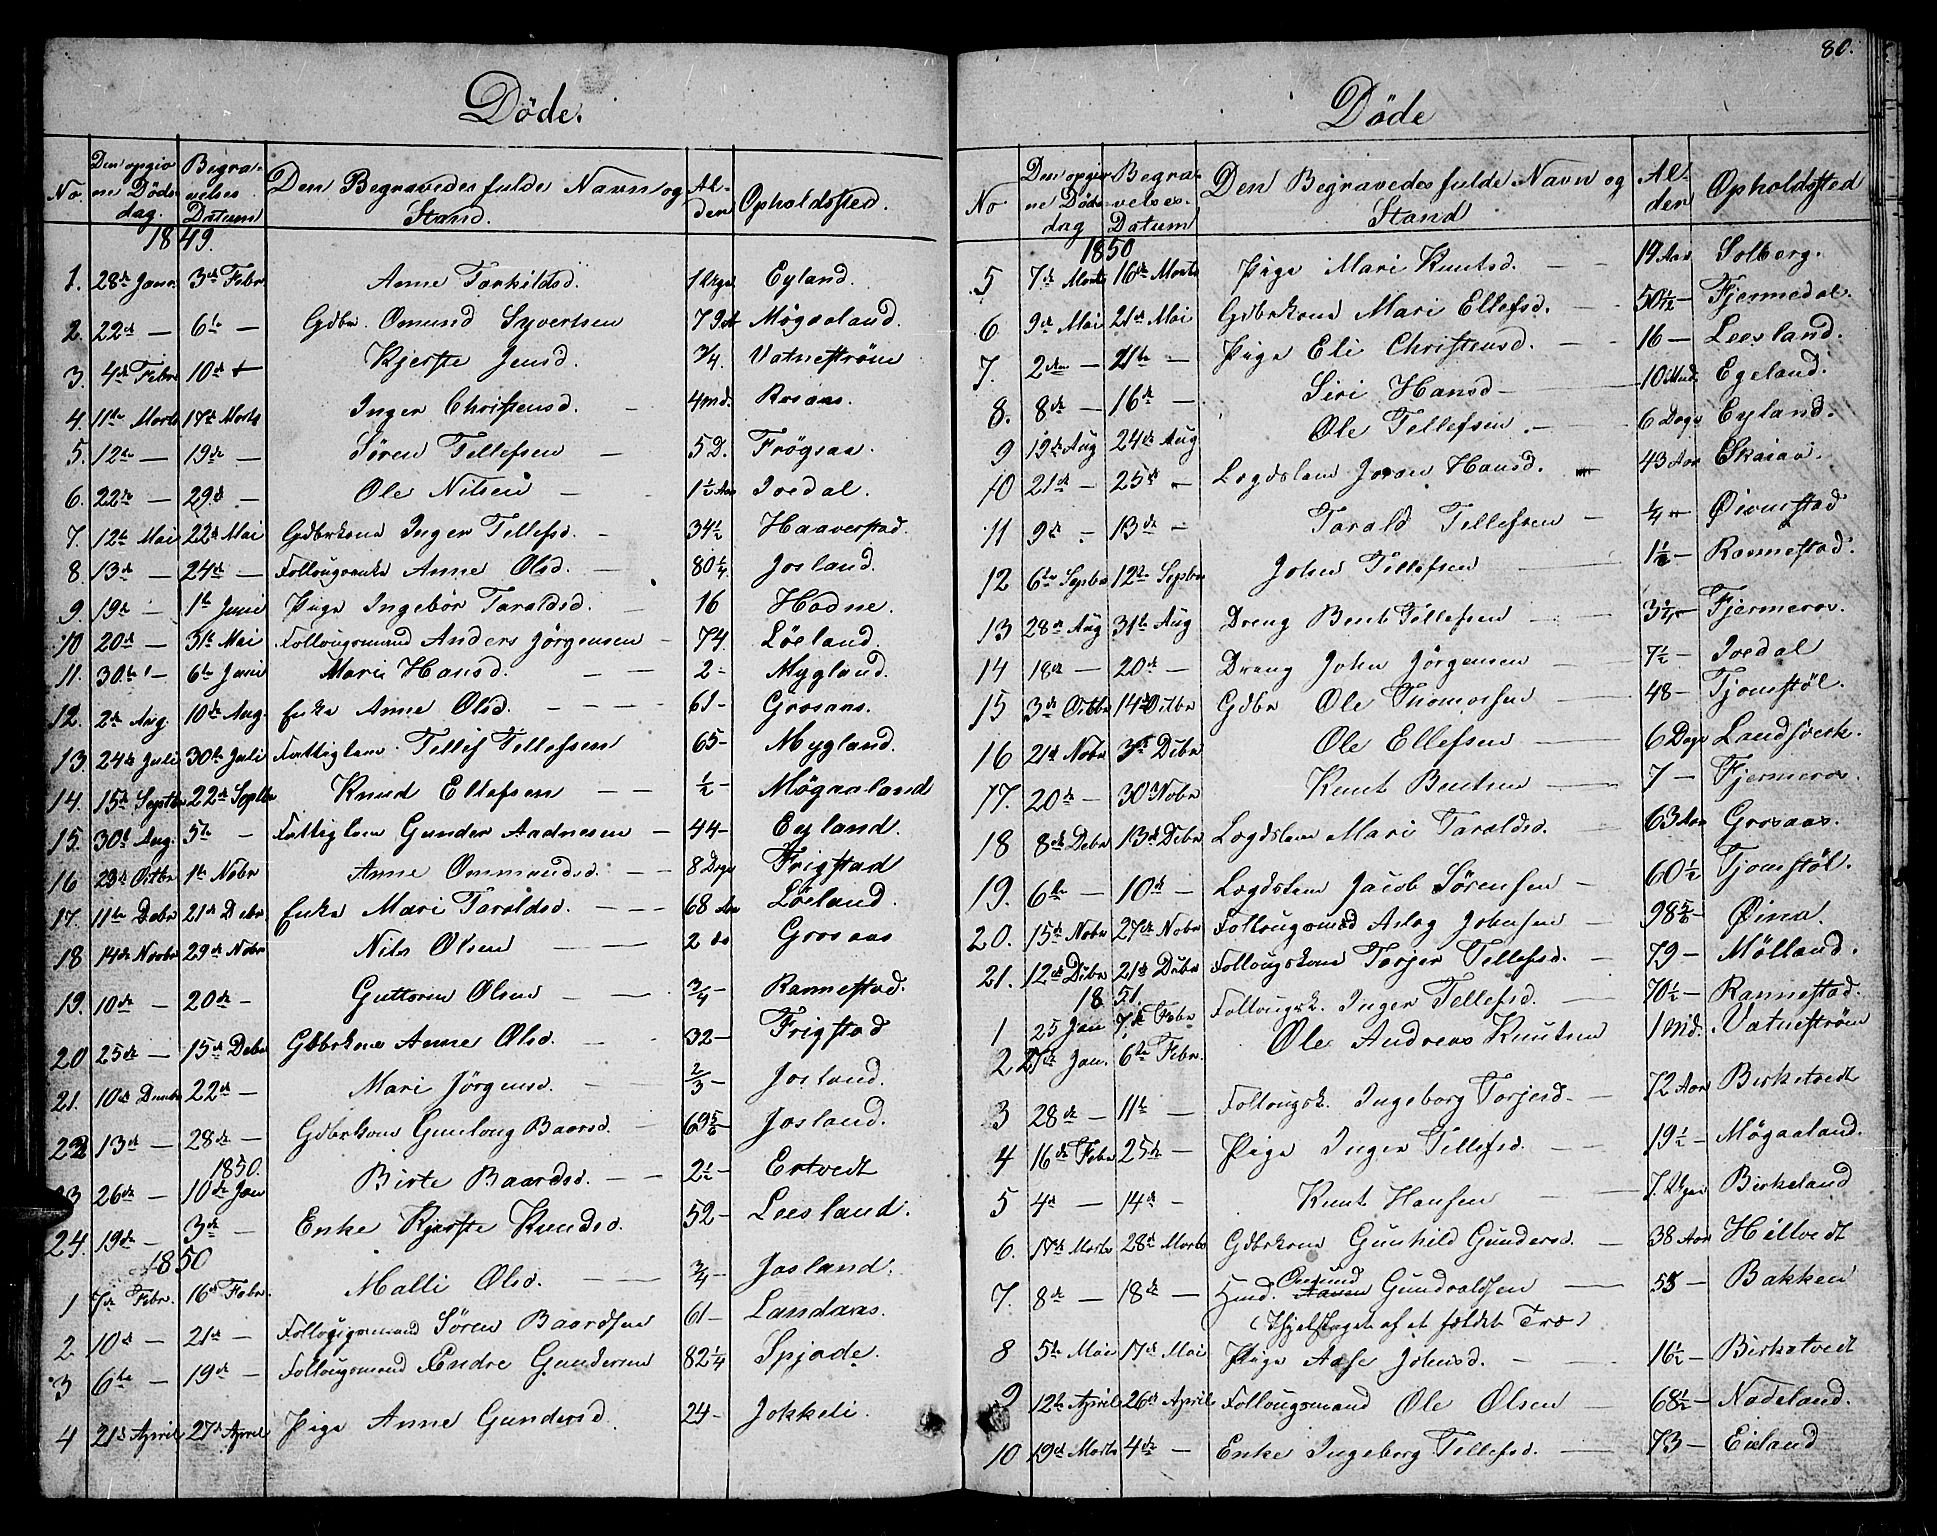 Döde.
No. | Den opgivne Dödsdag. | Begravelses Datum | Den Begravedes fulde Navn og Stand. | Alder | Opholdsted.
1849.
1. 28de Janr. 3de Febr Anne Tarkildsd. 1 Uge Eyland.
2. 22de — 6te — Gdbr. Omund Syvertsen 79 Møgaaland.
3. 4de Febr 10de — Kjerste Jensd. 3/4. Vatnestrøm
4. 11te Marts 17de Marts Inger Christensd. — 4md. Rosaas.
5. 12te — 19de — Søren Tellefsen — 5 D. Frøgsaa.
6. 22de — 29de — Ole Nilsen — 1½ Aar Ivedal.
7. 12te Mai 22de Mai Gdbrkone Inger Tellefsd. — 34½ Haaverstad.
8. 13de — 24de — Follougsenke Anne Olsd. — 80¼ Josland.
9. 19de — 1te Juni Pige Ingebor Taraldsd. — 16 Hodne.
10 20de — 31te Mai Follougsmand Anders Jörgensen — 74. Löeland.
11. 30te — 6te Juni Mari Hansd. — 2 - Mygland.
12. 2de Aug. 10de Aug. Enke Anne Olsd. — — — 61 - Grosaas.
13. 24de Juli 30te Juli Fattiglem Tellef Tellefsen 65 - Mygland.
14. 15de Septbr 22de Septbr Knud Ellefsen — — ½ - Møgaaland
15. 30te Aug. 5te — Fattiglem Gunder Aadnesen — 44 - Eyland.
16 23de Octbr 1te Nobr Anne Ommundsd. — — 8 Dage Frigstad
17. 11te Debr 21de Debr. Enke Mari Taraldsd. — — 68 Aar Löeland.
18 14de Novbr 29de Nobr Nils Olsen — — 2 do Grosaas
19. 10de — 20de — Guttorm Olsen — — 3/4 - Rannestad.
20 25de — 15de Debr Gdbrkone Anne Olsd. — — 32 - Frigstad
21. 10de Decembr 22de — Mari Jörgensd. — — 2/3 - Josland.
22 13de — 28de — Gdbrkone Gunloug Baarsd. — 69 5/6 Josland.
1850.
23 26de — 10de Jan Birte Baardsd. — — 2½ - Ertvedt
24. 19de — 3de — Enke Kjerste Knudsd. 52 - Leesland.
1850
1 7de Febr. 16de Febr. Malli Olsd. — — 3/4 - Josland.
2 10de — 21de — Follougsmand Sören Baardsen 61 - Landaas.
3 6te — 19de — Follougsmand Endre Gundersen 82¼ Spjode.
4 21de April 27de April Pige Anne Gundersd. 24 - Jokkeli.
80.
Döde
No | Den opgivne Dödsdag | Begravelses Datum | Den Begravedes fulde Navn og Stand | Alder | Opholdsted
1850
5 7de Marts 16de Marts Pige Mari Knutsd. — — 19 Aar Solberg.
6 9de Mai 21de Mai Gdbrkone Mari Ellefsd. — 50½ - Fjermedal.
7. 2den — 21te — Pige Eli Christensd. — — 16 - Leesland.
8. 8de — 16de — Siri Hansd — 10 Mnd. Egeland.
9 19de Aug 24de Aug Ole Tellefsen — 6 Dage Eyland.
10 21de — 25de — Logdslem Joran Hansd. — 43 Aar Skaiaa.
11 9de — 13de — Tarald Tellefsen — ¼ - Öivnestad
12 6te Septbr 12te Septbr John Tellefsen — 1½ - Rannestad.
13 28de Aug 31te Aug Dreng Bent Tellefsen — 3½ - Fjermeros.
14 18de — 20de — Dreng John Jörgensen — 7½ - Ivedal
15 3de Octbr 14de Octbr Gdbr Ole Thomassen — 48 - Tjomstöl.
16 21de Nobr 3de Debr Ole Ellefsen — 6 Dage Landsverk.
17. 20de — 30 Nobr Knut Bentsen — 7 — Fjermeros.
18 8de Debr 13de Debr Logdslem Mari Taraldsd. — 63 Aar Grosaas.
19. 6te — 10de — Logdslem Jacob Sörensen — 60½ Tjomstöl.
20. 15de Nobr 27de Nobr Follougsmand Aslag Johnsen — 98 5/6 - Öina.
21. 12te Debr 21de Debr Follougskone Torjer Tellefsd. — 79 - Mölland.
1851.
1 25 Jan 7de Febr Follougsk. Inger Tellefsd. — 70½ - Rannestad.
2 27de Jan. 6te Febr. Ole Andreas Knutsen 1 Md. Vatnestrøm
3 28de — 11te — Follougsk. Ingeborg Torjesd. — 72 Aar Birketvedt
4 16de Febr 25de — Pige Inger Tellefsd. — 19½ - Møgaaland.
5 4de — 14de — Knut Hansen — 7. Uger Birkeland
6. 17de Marts 28de Marts Gdbrkone Gunhild Gundersd. — 38 Aar Hillvedt
7. 8de — 18de — Hmd. Omund Gundvaldsen — 55 - Bakken
(Ihjelslaget af et fældet Træ)
8 5te Mai 17de Mai Pige Aase Johnsd. — 16½ - Birketvedt
9 12te April 26de April Follougsmand Ole Olsen — 68½ - Nodeland.
10 19de Marts 4de — Enke Ingeborg Tellefsd. — 73 - Eieland